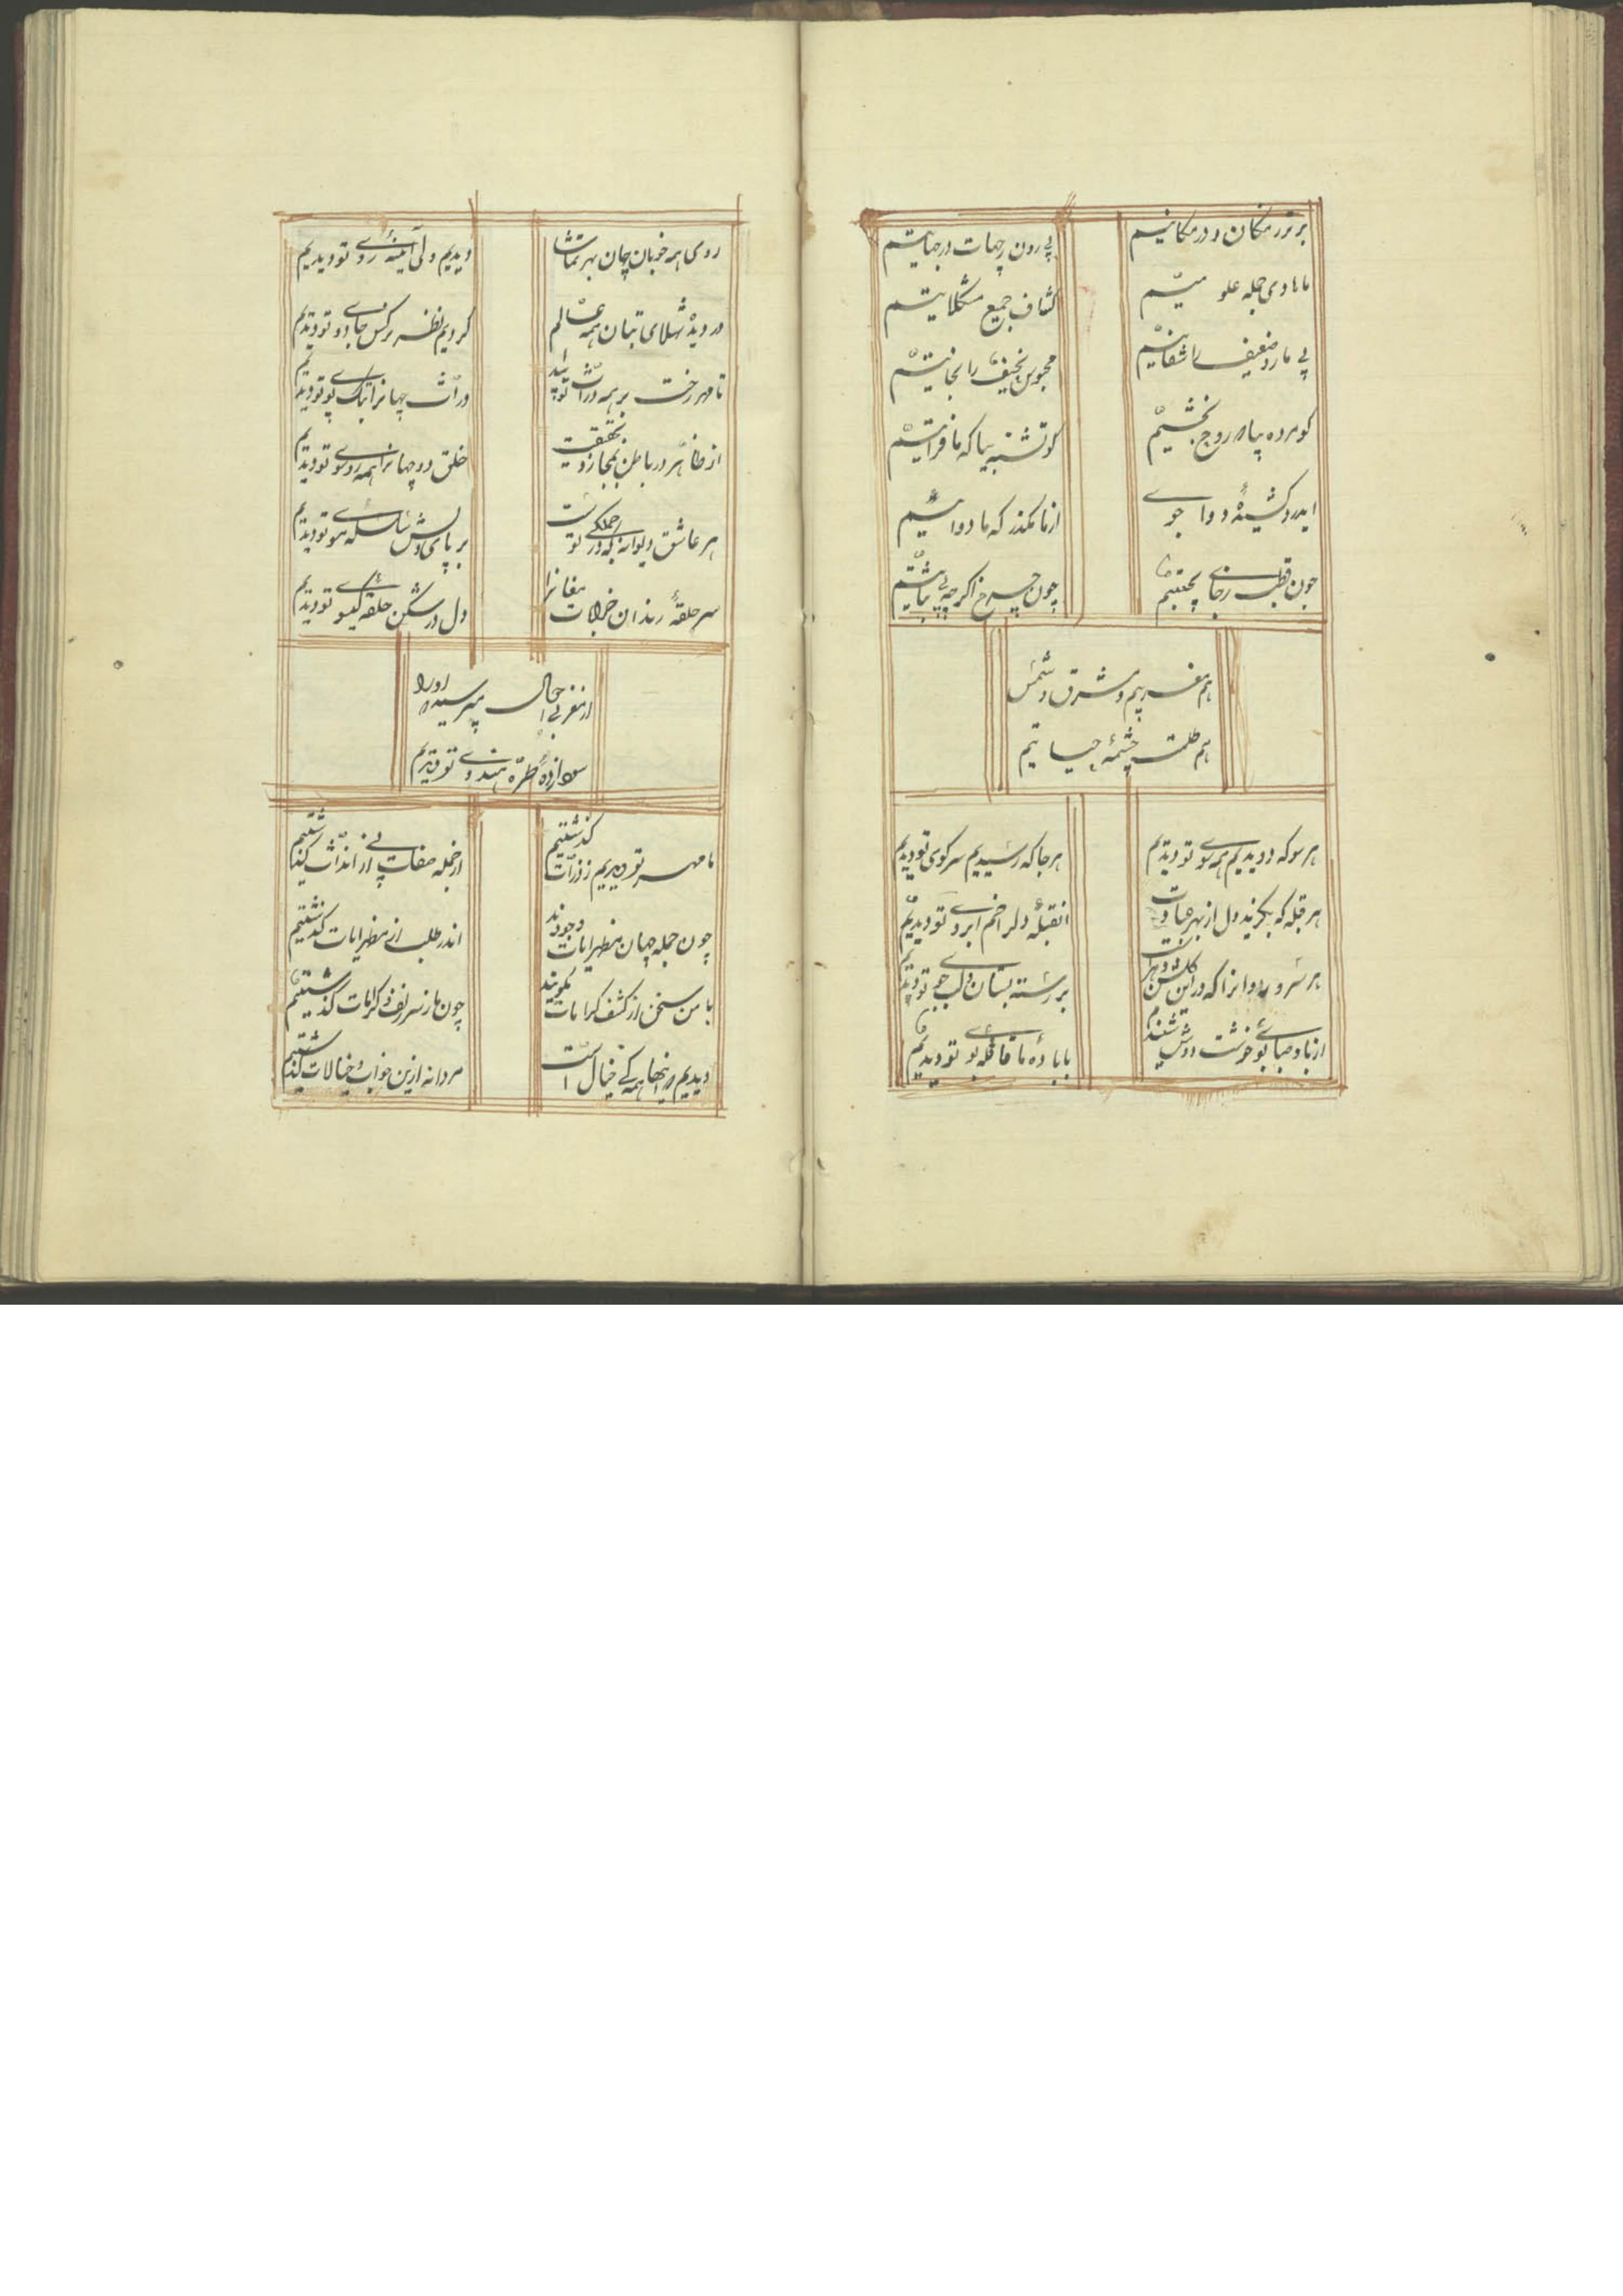 برتر ز مکان و در مکانیم
بیرون ز جهات و در جهاتیم
ما هادی جمله علومیم
کشاف جمیع مشکلاتیم
بیمار و ضعیف را شفاییم
محبوس نحیف را نجاتیم
کو مرده بیا که روح بخشیم
کو تشنه بیا که ما فراتیم
ای درد کشیدهٔ دوا جوی
از ما مگذر که ما دوائیم
چون قطب ز جای می‌نجنبیم
چون چرخ اگرچه بی ثباتیم
هم مغربیم و مشرق و شمس
هم ظلمت و چشمهٔ حیاتیم
هر سو که دویدیم همه سوی تو دیدیم
هر جا که رسیدیم سر کوی تو دیدیم
هر قبله که بگزید دل از بهر عبادت
آن قبلهٔ دل را خم ابروی تو دیدیم
هر سرو روان را که در این گلشن دهر است
بر رسته بستان و لب جوی تو دیدیم
از باد صبا بوی خوشت دوش شنیدیم
با باد صبا قافلهٔ بوی تو دیدیم
روی همه خوبان جهان بهر تماشا
دیدیم ولی آینهٔ روی تو دیدیم
در دیدهٔ شهلای بتان همه عالم
کردیم نظر نرگس جادوی تو دیدیم
تا مهر رخت بر همه ذرات بتابید
ذرات جهان را بتک و پوی تو دیدیم
از ظاهر و باطن بمجاز و بحقیقت
خلق دو جهان را همه رو سوی تو دیدیم
هر عاشق دیوانه که در جملگی تست
بر پای دلش سلسلهٔ موی تو دیدیم
سر حلقهٔ رندان خرابات مغان را
دل در شکن حلقهٔ گیسوی تو دیدیم
از مغربی احوال مپرسید که او را
سودا زدهٔ طرهٔ هندوی تو دیدیم
ما مهر تو دیدیم ز ذرات گذشتیم
از جمله صفات از پی آن ذات گذشتیم
چون جمله جهان مظهر آیات وجودند
اندر طلب از مظهر آیات گذشتیم
با من سخن از کشف کرامات مگویید
چون ما ز سر کشف و کرامات گذشتیم
دیدیم که اینها همه خواب و خیال است
مردانه ازین خواب و خیالات گذشتیم